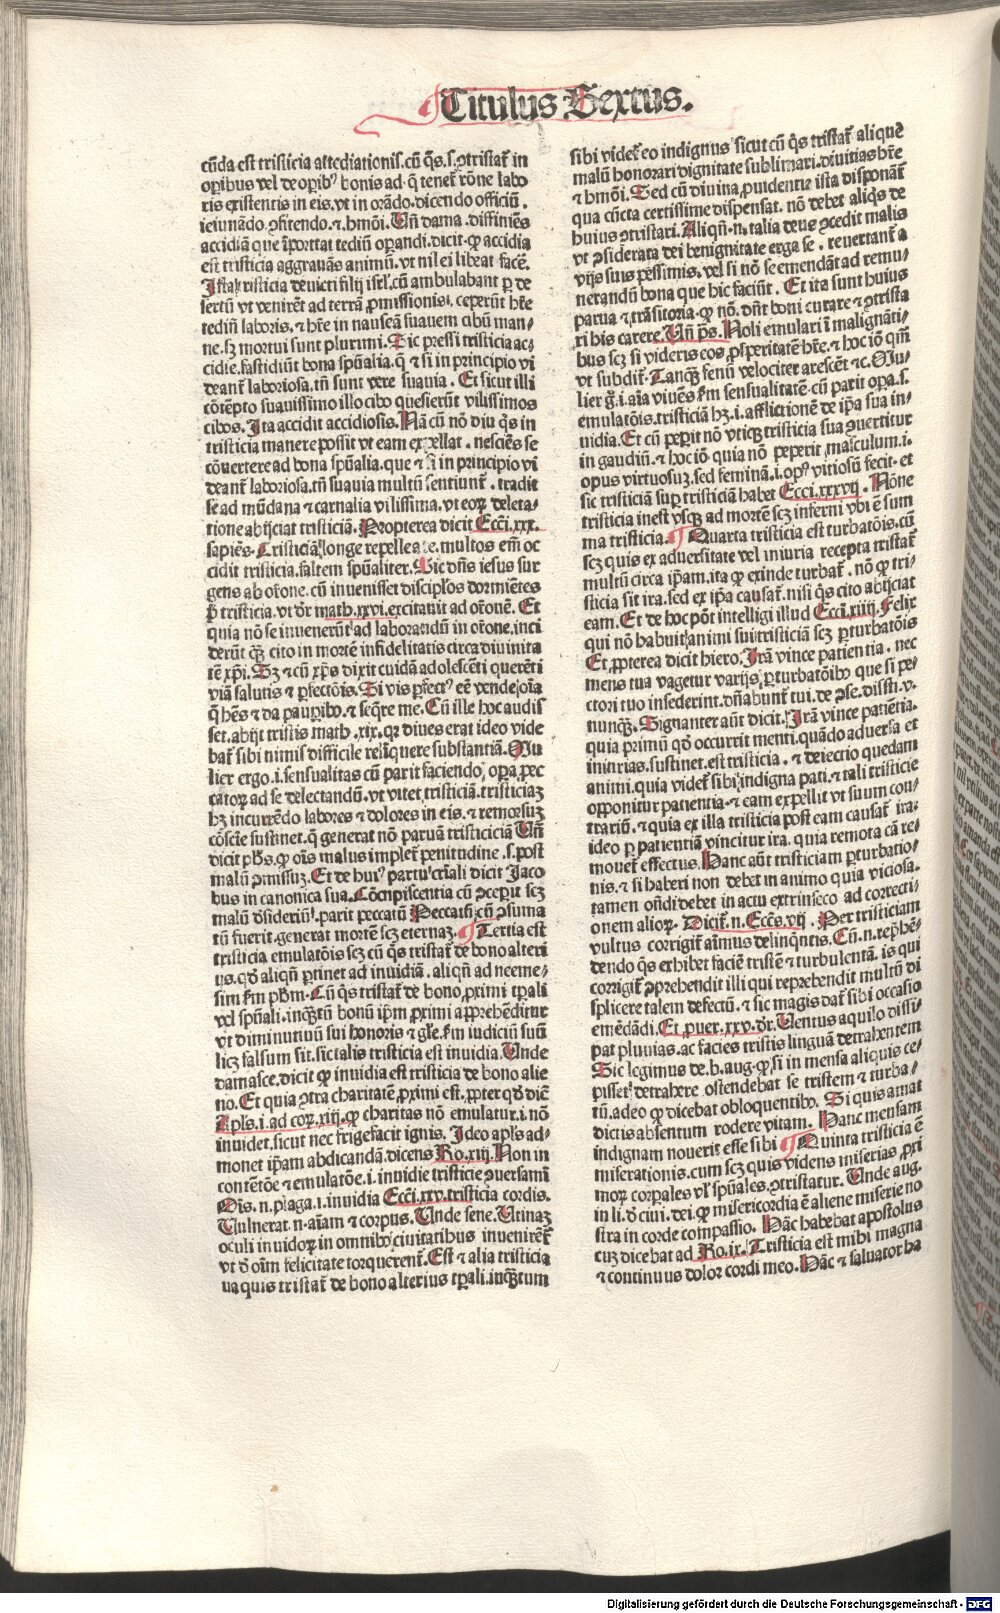 Titulus Sextus.
cūda est tristicia attediationis. cū q̄s. s. ꝯtristat᷑ in
oꝑibus vel de oꝑibꝰ bonis ad. q̄ tenet᷑ rōne labo
ris existentis in eis. vt in orādo. dicendo officiū.
ieiunādo. ꝯfitendo. ⁊. hmōi. Vn̄ dama. diffiniēs
accidiā que īporttat tediū oꝑandi. dicit. ꝙ accidia
est tristicia aggrauās animū. vt nil ei libeat facē.
Ista tristicia deuicti filij isrl̄. cū ambulabant ꝑ de
sertū vt venirēt ad terrā ꝓmissionis. ceperūt hr̄e
tediū laboris. ⁊ hr̄e in nauseā suauem cibū man/
ne. sꝫ mortui sunt plurimi. Sic pressi tristicia ac/
cidie. fastidiūt bona spūalia. q̄ ⁊ si in principio vi
deant᷑ laboriosa. tn̄ sunt vere suauia. Et sicut illi
cōtēpto suauissimo illo cibo quesierūt vilissimos
cibos. Ita accidit accidiosis. Nā cū nō diu q̄s in
tristicia manere possit vt eam expellat. nesciēs se
cōuertere ad bona spūalia. que ⁊ si in principio vi
deant᷑ laboriosa. tn̄ suauia multū sentiunt᷑. tradit
se ad mūdana ⁊ carnalia vilissima. vt eoꝝ delecta/
tione abijciat tristiciā. Propterea dicit Ecci. xxx.
sapiēs. Tristiciā longe repelle a te. multos em̄ oc
cidit tristicia. saltem spūaliter. Sic dn̄s iesus sur
gens ab orōne. cū inuenisset disciplos dormiētes
p̄ tristicia. vt dr̄ math. xxvi. excitauit ad orōnē. Et
quia nō se inuenerūt ad laborandū in orōne. inci
derūt qꝫ cito in mortē infidelitatis circa diuinita
tē xp̄i. Sꝫ ⁊ cū xp̄s dixit cuidā adolescēti querēti
viā salutis ⁊ ꝑfectōis. Si vis ꝑfectꝰ eē vende oīa
q̄ hēs ⁊ da pauꝑibꝰ. ⁊ seq̄re me. Cū ille hoc audis
set. abijt tristis math. xix. qꝛ diues erat ideo vide
bat᷑ sibi nimis difficile relinquere substantiā. Mu
lier ergo. i. sensualitas cū parit faciendo, oꝑa pec
catoꝝ ad se delectandū. vt vitet tristiciā. tristiciaꝫ
hꝫ incurrēdo labores ⁊ dolores in eis. ⁊ remorsuꝫ
cōscīe sustinet. q̄ generat nō paruā tristiciciā Vn̄
dicit phs. ꝙ oīs malus implet᷑ penitudine. s. post
malū ꝯmissuꝫ. Et de huiꝰ partu cr̄iali dicit Jaco
bus in canonica sua. Cōcupiscentia cū ꝯceperit scꝫ
malū d̓sideriū. parit peccatū Peccatū cū ꝯsuma
tū fuerit. generat mortē scꝫ eternaꝫ. Tertia est
tristicia emulatōis scꝫ cū q̄s tristat᷑ de bono alteri
us. qd̓ aliqn̄ ꝑtinet ad inuidiā. aliqn̄ ad neeme/
sim scdm phm. Cū q̄s tristat᷑ de bono, ꝓximi tꝑali
vel spūali. inqꝫtū bonū ip̄m ꝓximi apprehēditur
vt diminutiuū sui honoris ⁊ gl̄e. scdm iudiciū suū
licꝫ falsum sit. sic talis tristicia est inuidia. Vnde
damasce. dicit ꝙ inuidia est tristicia de bono alie
no. Et quia ꝯtra charitatē ꝓximi est. ꝓpter qd̓ dic̄
Apls. i. ad coꝝ. xiij. ꝙ charitas nō emulatur. i. nō
inuidet. sicut nec frigefacit ignis. Ideo apls ad/
monet ip̄am abdicandā. dicens Ro. xiij. Non in
contētōe ⁊ emulatōe. i. inuidie tristicie ꝯuersamī
Oīs. n. plaga. i. inuidia Ecci. xxv. tristicia cordis.
Vulnerat. n. aīam ⁊ corpus. Vnde sene. Vtinaꝫ
oculi inuidoꝝ in omnibꝰ ciuitatibus inuenirēt᷑
vt d̓ oīm felicitate torquerent᷑. Est ⁊ alia tristicia
ua quis tristat᷑ de bono alterius tꝑali. inqꝫtum
sibi videt᷑ eo indignus sicut cū q̄s tristat᷑ aliquē
malū honorari dignitate sublimari. diuitias hr̄e
⁊ hmōi. Sed cū diuina ꝓuidentia ista disponat᷑
qua cūcta certissime dispensat. nō debet aliq̄s de
huius ꝯtristari. Aliqn̄. n. talia deus ꝯcedit malis
vt ꝯsiderata dei benignitate erga se. reuertant᷑ a
vijs suis pessimis. vel si nō se emendāt ad remu/
nerandū bona que hic faciūt. Et ita sunt huius
parua ⁊ trāsitoria. ꝙ nō. dn̄t boni curare ⁊ ꝯtrista
ri his carere. Vn̄ ps. Noli emulari ī malignāti/
bus scꝫ si videris eos ꝓsperitatē hr̄e. ⁊ hoc iō qm̄
vt subdit᷑. Tanqꝫ fenū velociter arescēt ⁊c. Mu/
lier g̊. i. aīa viuēs scdm sensualitatē. cū parit oꝑa. s.
emulatōis. tristiciā hꝫ. i. afflictionē de ip̄a sua in/
uidia. Et cū peꝑit nō vtiqꝫ tristicia sua ꝯuertitur
in gaudiū. ⁊ hoc iō quia nō peperit masculum. i.
opus virtuosuꝫ. sed feminā. i. opꝰ vitiosū fecit. et
sic tristiciā suꝑ tristiciā habet Ecci. xxxvij. Nōne
tristicia inest vsqꝫ ad mortē scꝫ inferni vbi ē sum
ma tristicia. Quarta tristicia est turbatōis. cū
scꝫ quis ex aduersitate vel iniuria recepta tristat᷑
multū circa ip̄am. ita ꝙ exinde turbat᷑. nō ꝙ tri/
sticia sit ira. sed ex ip̄a causat᷑. nisi q̄s cito abijciat
eam. Et de hoc pōt intelligi illud Ecci. xiiij. Felix
qui nō habuit animi sui tristiciā scꝫ ꝑturbatōis
Et ꝓpterea dicit hiero. Irā vince patientia. nec
mens tua vagetur varijs ꝑturbatōibꝰ que si pe/
ctori tuo insederint. dn̄abunt᷑ tui. de ꝯse. dist. v.
nunqꝫ. Signanter aūt dicit. Irā vince patiētia.
quia primū qd̓ occurrit menti. quādo aduersa et
iniurias. sustinet. est tristicia. ⁊ deiectio quedam
animi. quia videt᷑ sibi indigna pati. ⁊ tali tristicie
opponitur patientia. ⁊ eam expellit vt suum con/
trariū. ⁊ quia ex illa tristicia post eam causat᷑ ira.
ideo ꝑ patientiā vincitur ira. quia remota cā re/
mouet᷑ effectus. Hanc aūt tristiciam ꝑturbatio/
nis. ⁊ si haberi non debet in animo quia viciosa.
tamen oñdi debet in actu extrinseco ad correcti/
onem alioꝝ. Dicit᷑. n. Eccs. vij. Per tristiciam
vultus corrigit᷑ aīmus delinq̄ntis. Cū. n. rep̄hē/
dendo q̄s exhibet faciē tristē ⁊ turbulentā. is qui
corrigit᷑ ꝯprehendit illi qui reprehendit multū di
splicere talem defectū. ⁊ sic magis dat᷑ sibi occasio
emēdādi. Et ꝓuer. xxv. dr̄. Ventus aquilo dissi/
pat pluuias. ac facies tristis linguā detrahentem
Sic legimus de. b. aug. ꝙ si in mensa aliquis ce/
pisset detrahere ostendebat se tristem ⁊ turba/
tū. adeo ꝙ dicebat obloquentibꝰ. Si quis amat
dictis absentum rodere vitam. Hanc mensam
indignam nouerit esse sibi Quinta tristicia ē
miserationis. cum scꝫ quis videns miserias ꝓxi
moꝝ corpales vl̓ spūales. ꝯtristatur. Vnde aug.
in li. d̓ ciui. dei. ꝙ misericordia ē aliene miserie no
stra in corde compassio. Hāc habebat apostolus
cuꝫ dicebat ad Ro. ix. Tristicia est mihi magna
⁊ continuus dolor cordi meo. Hāc ⁊ saluator ha
Digitalisierung gefördert durch die Deutsche Forschungsgemeinschaft - DFG